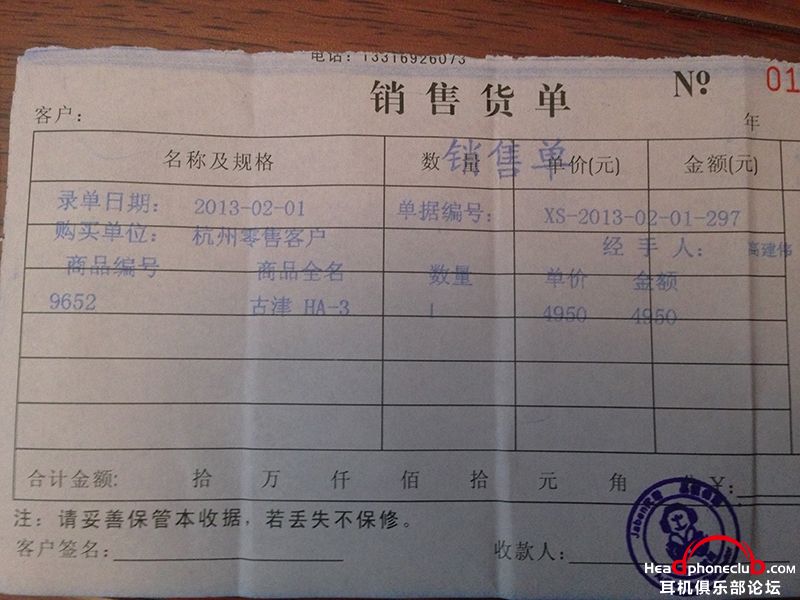 电话：13316926073
销售货单 № 01
客户： 年
名称及规格 数量 单价(元) 金额(元)
销售单
录单日期： 2013-02-01 单据编号： XS-2013-02-01-297
购买单位： 杭州零售客户 经手人： 高建伟
商品编号 商品全名 数量 单价 金额
9652 古津 HA-3 1 4950 4950
合计金额： 拾 万 仟 佰 拾 元 角 分 ¥：
注：请妥善保管本收据，若丢失不保修。
客户签名： 收款人：
Jaben
Headphoneclub.com
耳机俱乐部论坛